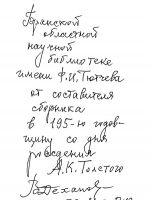 Брянской
областной
научной
библиотеке
имени Ф.И. Тютчева
от составителя
сборника
в 195-ю годов-
щину со дня
рождения
А.К. Толстого